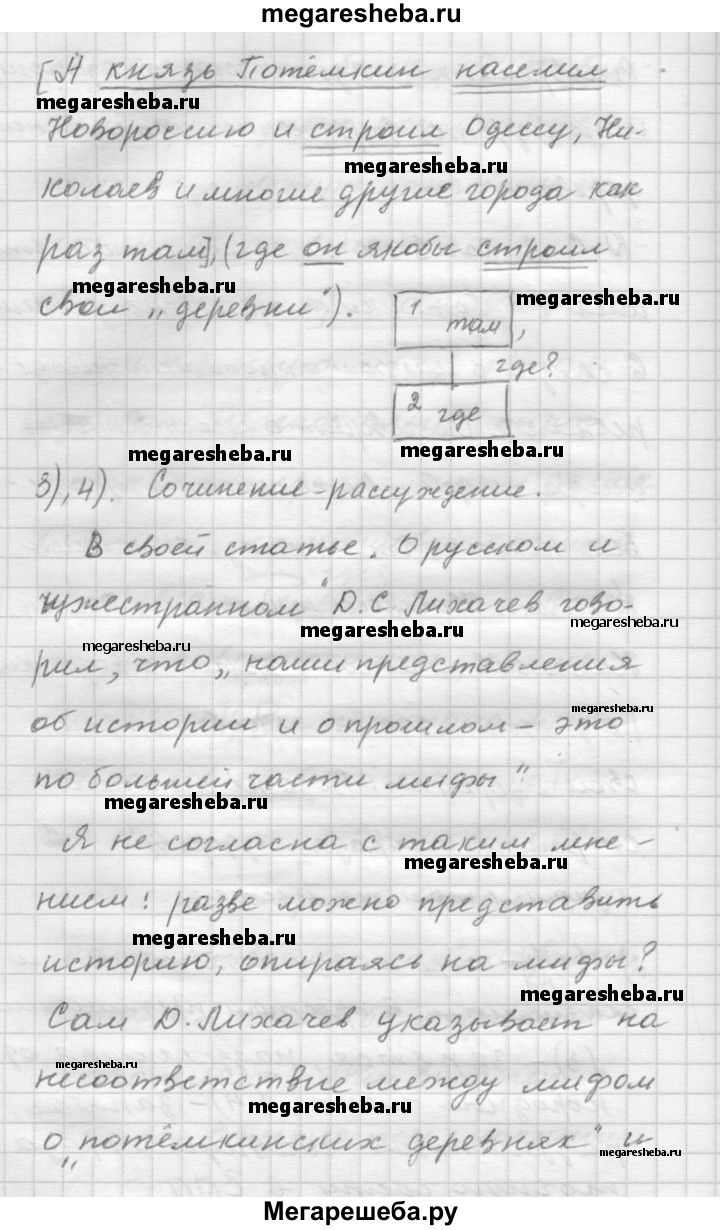 megaresheba.ru
[А князь Потёмкин населил
megaresheba.ru
Новороссию и строил Одессу, Ни-
megaresheba.ru
колаев и многие другие города как
раз там], (где он якобы строил
megaresheba.ru
megaresheba.ru
свои „деревни").
1 там,
где?
2 где
megaresheba.ru
megaresheba.ru
3), 4). Сочинение-рассуждение.
В своей статье „О русском и
чужестранном" Д.С Лихачев гово-
megaresheba.ru
megaresheba.ru
megaresheba.ru
рил, что „наши представления
megaresheba.ru
об истории и о прошлом – это
по большей части мифы"
megaresheba.ru
Я не согласна с таким мне-
megaresheba.ru
нием: разве можно представить
megaresheba.ru
историю, опираясь на мифы?
megaresheba.ru
Сам Д. Лихачев указывает на
megaresheba.ru
несоответствие между мифом
megaresheba.ru
о „потёмкинских деревнях" и
megaresheba.ru
Мегарешеба.ру